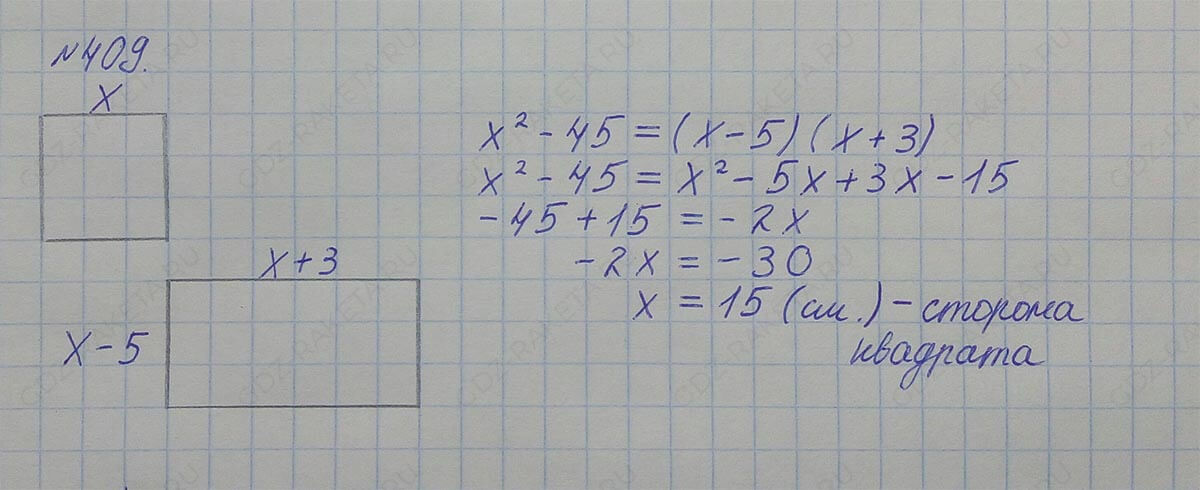 №409.
x
x+3
x-5
x² - 45 = (x-5)(x+3)
x² - 45 = x² - 5x + 3x - 15
-45 + 15 = -2x
-2x = -30
x = 15 (см.) - сторона
квадрата
GDZ-RAKETA.RU